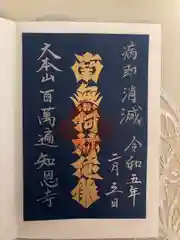 病即消滅
令和五年
二月五日
南無阿弥陀佛
大本山百萬遍知恩寺